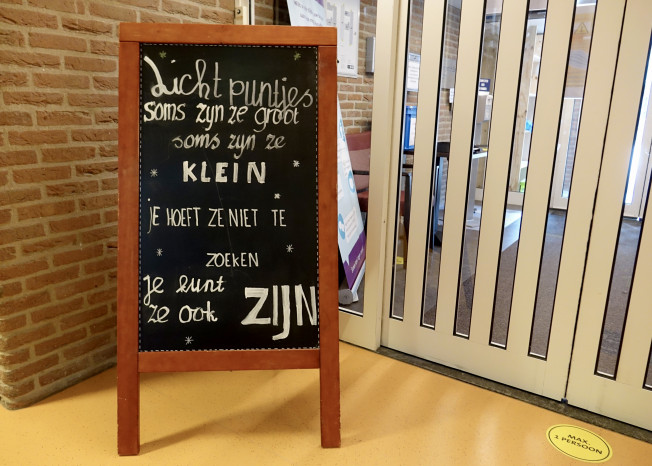 Lichtpuntjes
soms zijn ze groot
soms zijn ze
KLEIN
JE HOEFT ZE NIET TE
ZOEKEN
je kunt
ze ook ZIJN
MAX.
1 PERSOON